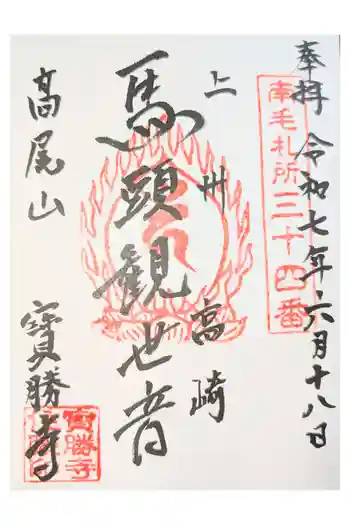 奉拝 令和七年六月十八日
南毛札所三十四番
上州 高崎
馬頭観世音
高尾山 寳勝寺